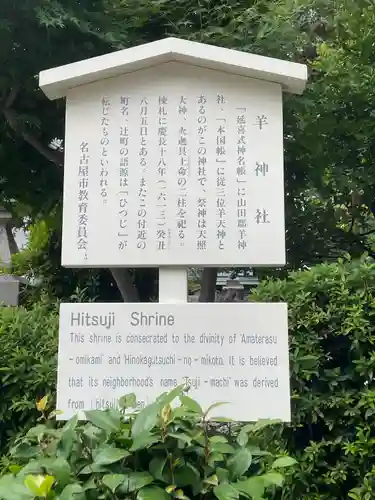 羊神社
『延喜式神名帳』に山田郡羊神
社、『本国帳』に従三位羊天神と
あるのがこの神社で、祭神は天照
大神、火迦具土命の二柱を祀る。
棟札に慶長十八年（一六一三）癸丑
八月五日とある。またこの付近の
町名、辻町の語源は「ひつじ」が
転じたものといわれる。
名古屋市教育委員会
Hitsuji Shrine
This shrine is consecrated to the divinity of 'Amaterasu
-omikami' and 'Hinokagutsuchi-no-mikoto. It is believed
that its neighborhood's name 'Tsuji-machi' was derived
from